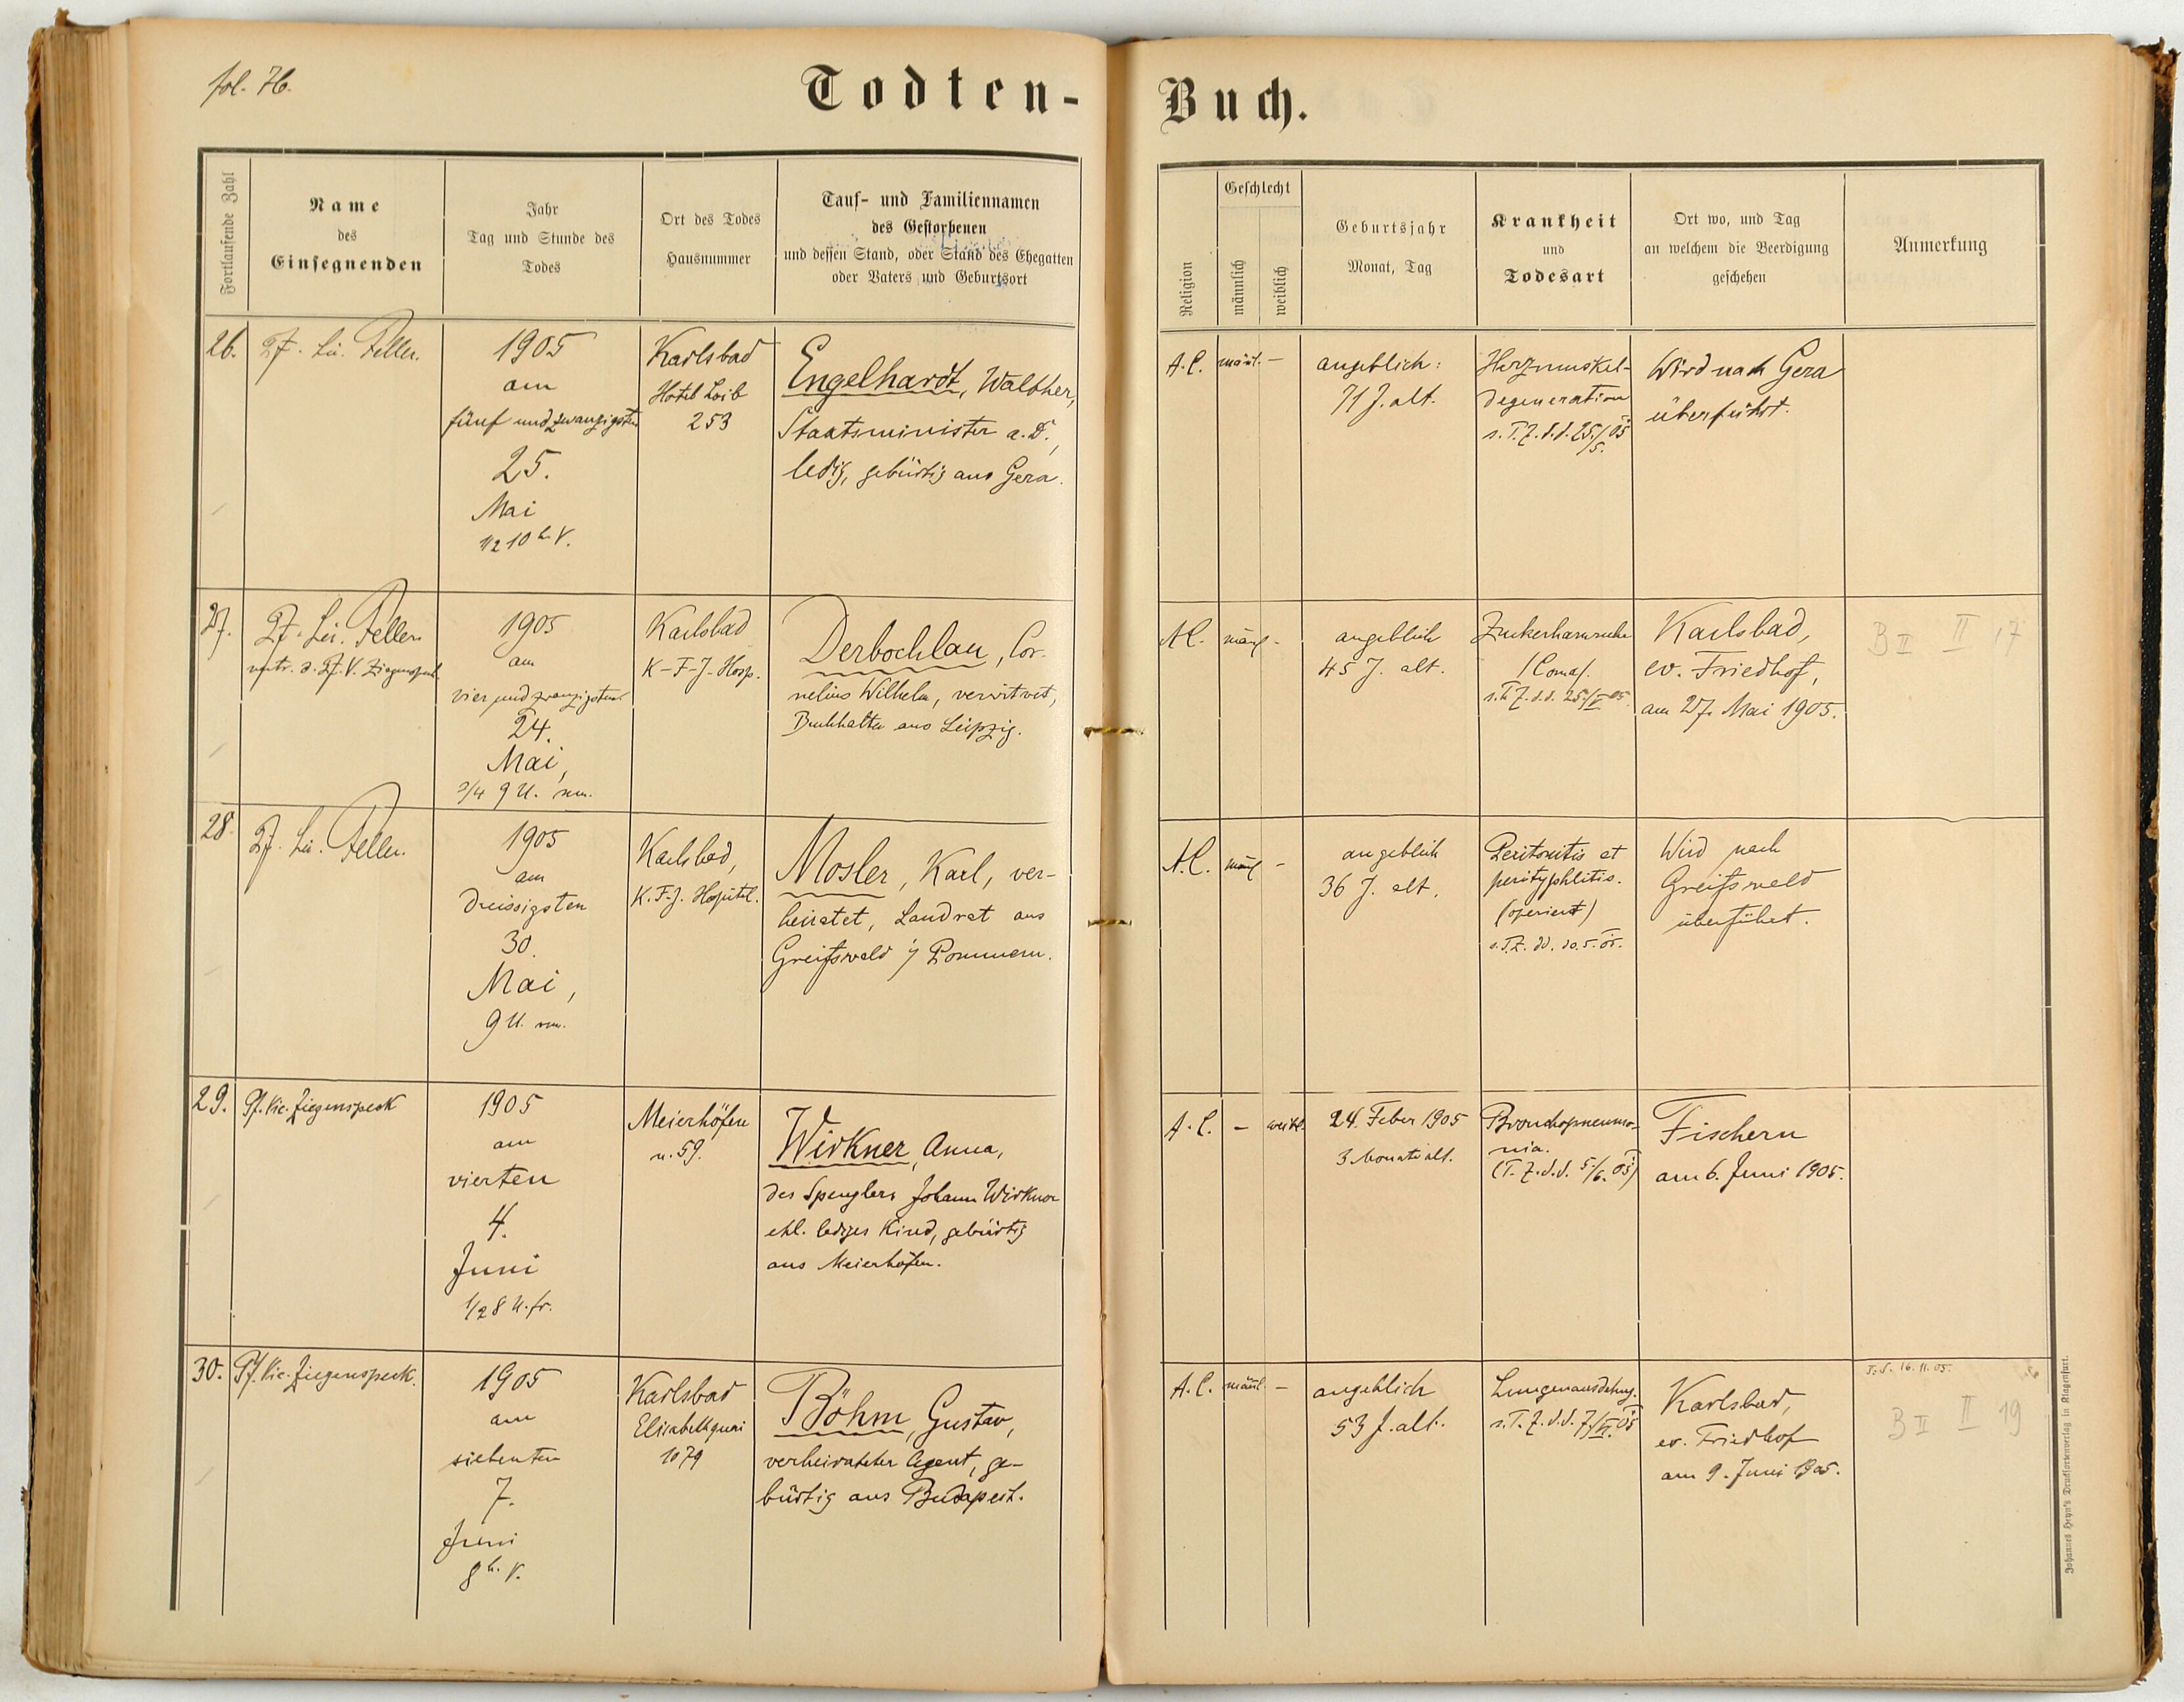 fol. 76.
Todten-
Buch.
Fortlaufende Zahl
Name
des
Einsegnenden
Jahr
Tag und Stunde des
Todes
Ort des Todes
Hausnummer
Tauf- und Familiennamen
des Gestorbenen
und dessen Stand, oder Stand des Ehegatten
oder Vaters und Geburtsort
Religion
Geschlecht
männlich
weiblich
Geburtsjahr
Monat, Tag
Krankheit
und
Todesart
Ort wo, und Tag
an welchem die Beerdigung
geschehen
Anmerkung
26.
Feller.
1905
am
fünf und zwanzigsten
25.
Mai
1/2 10 h. V.
Karlsbad
Hotel Loib
253
Engelhardt, Walther,
Staatsminister a. D.,
ledig, gebürtig aus Gera.
A.C.
männl.
–
angeblich:
71 J. alt.
Herzmuskel-
degeneration
s. T. Z. d. d. 25./5. 05
Wird nach Gera
überführt.
27.
Feller
vertr. d. Pf. V. Ziegenspeck
1905
am
vier und zwanzigsten
24.
Mai,
3/4 9 U. nm.
Karlsbad
K-F-J-Hosp.
Derbochlau, Cor-
nelius Wilhelm, verwitwet,
Buchhalter aus Leipzig.
A.C.
männl.
-
angeblich
45 J. alt.
Zuckerharnruhr
(Coma).
s. T. Z. d. d. 25./V 05.
Karlsbad,
ev. Friedhof,
am 27. Mai 1905.
B II II 17
28.
Feller.
1905
am
dreissigsten
30.
Mai,
9 U. vm.
Karlsbad,
K. F-J. Hospital.
Mosler, Karl, ver-
heiratet, Landrat aus
Greifswald i/ Pommern.
A.C.
männl.
-
angeblich
36 J. alt.
Peritonitis et
perityphlitis.
(operiert)
s. T. Z. dd. 30. 5. 05.
Wird nach
Greifswald
überführt.
29.
Pf. Vic. Ziegenspeck
1905
am
vierten
4.
Juni
1/2 8 U. fr.
Meierhöfen
n. 59.
Wirkner, Anna,
des Spenglers Johann Wirkner
ehl. lediges Kind, gebürtig
aus Meierhöfen.
A.C.
–
weibl.
24. Feber 1905
3 Monate alt.
Bronchopneumo-
nia.
(T. Z. d. d. 5./6. 05)
Fischern
am 6. Juni 1905.
30.
Pf. Vic. Ziegenspeck.
1905
am
siebenten
7.
Juni
8 h. V.
Karlsbad
Elisabethquai
1079
Böhm, Gustav,
verheirateter Agent, ge-
bürtig aus Budapest.
A.C.
männl.
–
angeblich
53 J. alt.
Lungenausdehng.
s. T. Z. d. d. 7./VI. 05
Karlsbad,
ev. Friedhof
am 9. Juni 1905.
T. S. 16. 11. 05.
B II II 19
Johannes Heyn's Drucksortenverlag in Klagenfurt.